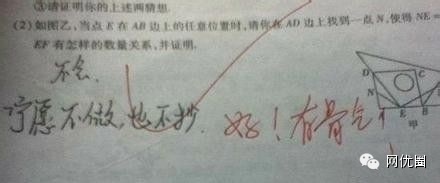 ③请证明你的上述两猜想.
(2)如图乙,当点 E 在 AB 边上的任意位置时,请你在 AD 边上找到一点 N,使得 NE=
EF 有怎样的数量关系,并证明.
不会.
宁愿不做,也不抄.
好!有骨气!
D C
N
E B
甲
网优圈